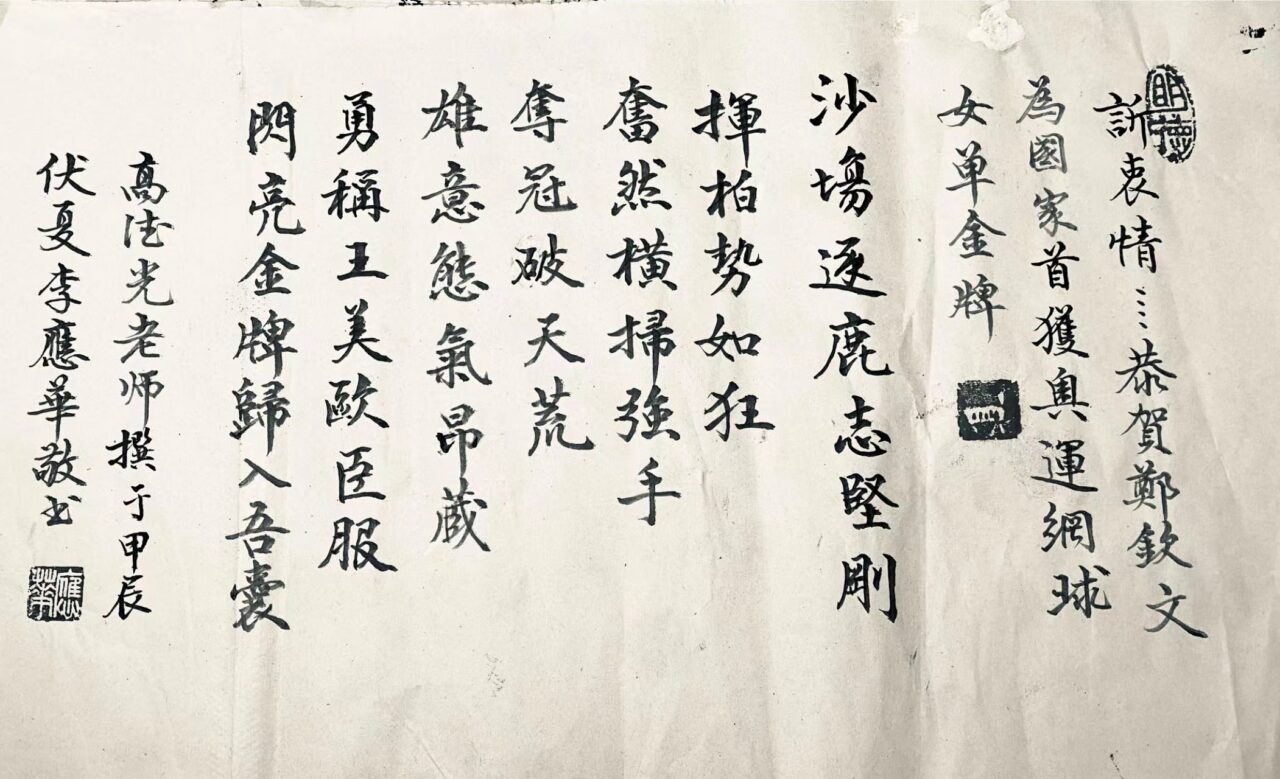 訢衷情⋯恭賀鄭欽文
為國家首獲奥運網球
女单金牌
沙塲逐鹿志堅剛
揮柏勢如狂
奮然横掃強手
奪冠破天荒
雄意態氣昂蔵
勇稱王美歐臣服
閃亮金牌歸入吾囊
高德光老师撰于甲辰
伏夏李應華敬书
明德
應華